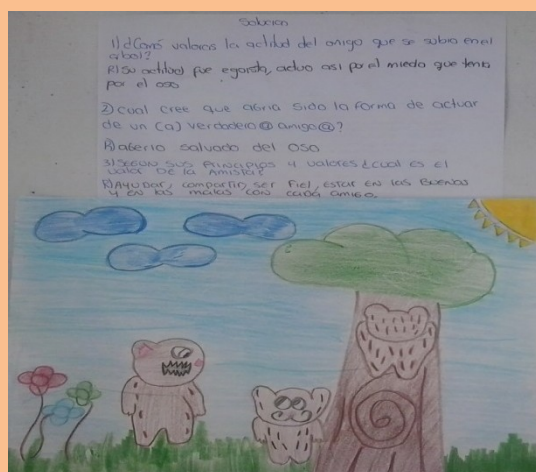 Solucion
1) ¿Comó valoras la actitud del amigo que se subio en el
arbol?
R) Su actitud fue egoista, actuo asi por el miedo que tenia
por el oso
2) cual cree que abria sido la forma de actuar
de un (a) verdader@ amig@?
R) aberlo salvado del oso
3) SEGUN SUS PRINCIPIOS Y VALORES ¿CUAL ES EL
VALOR DE LA AMISTAD?
R) AYUDAR, compartir, ser Fiel, ESTAR EN las BUENAS
Y EN las malas con cada amigo.